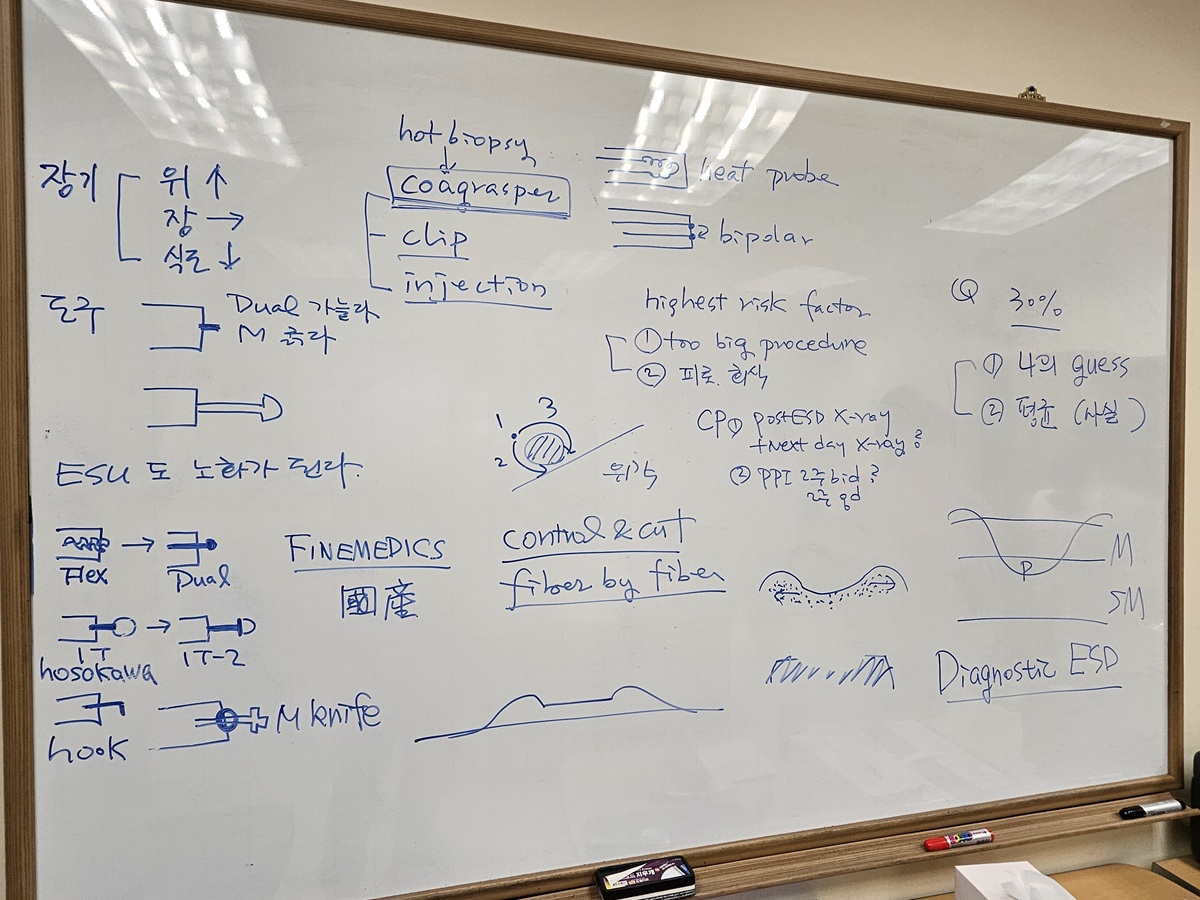 장기
위 ↑
장 →
식도 ↓
도구
Dual 가늘다
M 굵다
ESU 도 노화가 된다.
Flex → Dual
IT → IT-2
hosokawa
hook
M knife
FINEMEDICS
國産
hot biopsy
↓
coagrasper
clip
injection
heat probe
bipolar
highest risk factor
① too big procedure
② 피로. 회식
3
1
2
위각
CP① post ESD X-ray
+ Next day X-ray?
② PPI 2주 bid?
2주 qd
control & cut
fiber by fiber
Q 30%
① 4의 guess
② 평균 (사실)
M
P
SM
Diagnostic ESD
지우개